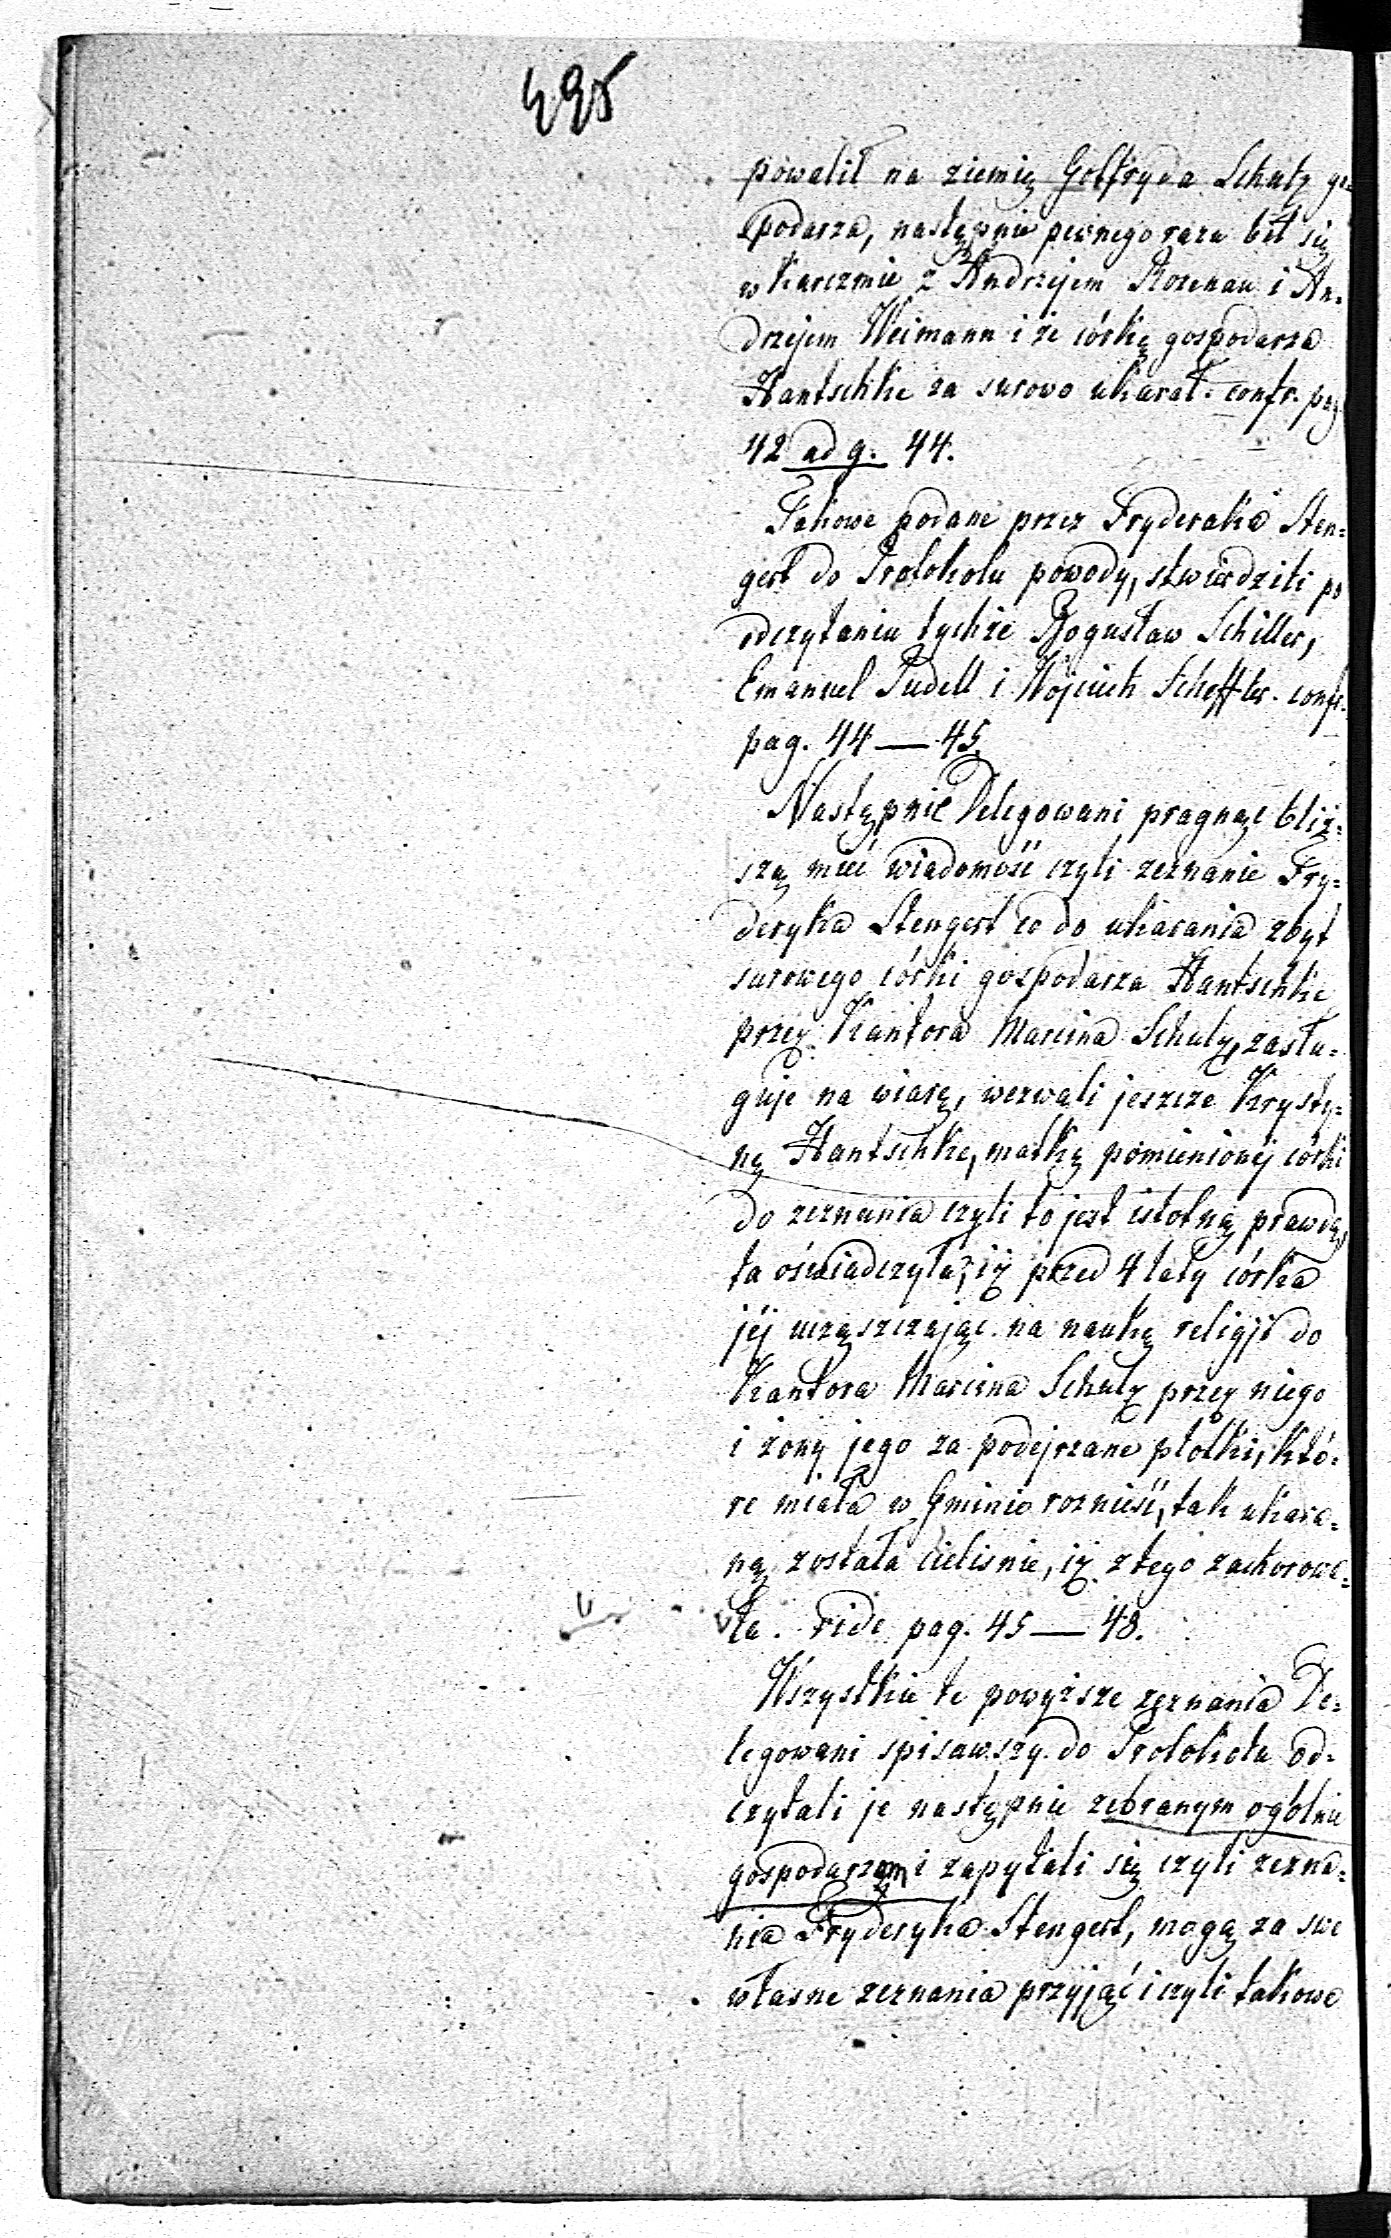 495
powalił na ziemię Gottfryda Schulz go
spodarza, następnie pewnego razu bił się
w karczmie z Andrzejem Rosenau i An=
drzejem Weimann i że córkę gospodarza
Hantschke za surowo ukarał. confr. pag
42 ad g. 44.
Takowe podane przez Fryderaka Sten=
gert do Protokołu powody, stwierdzili po
odczytaniu tychże Bogusław Schiller,
Emanuel Pudell i Wojciech Scheffler. confr.
pag. 44 — 45.
Następnie Delegowani pragnąc bliż=
szą mieć wiadomość czyli zeznanie Fry=
deryka Stengert co do ukarania zbyt
surowego córki gospodarza Hantschke
przez Kantora Marcina Schulz, zasłu=
guje na wiarę, wezwali jeszcze Krysty=
nę Hantschke, matkę pomienionéj córki
do zeznania czyli to jest istotną prawdą,
ta oświadczyła, iż przed 4 laty córka
jéj uczęszczając na naukę religji do
Kantora Marcina Schulz przez niego
i żony jego za podejrzane plotki, któ=
re miała w Gminie roznieść, tak ukara=
ną została cieliśnie, iż z tego zachorowa=
ła. vide pag. 45 — 48.
Wszystkie te powyższe zeznania De=
legowani spisawszy do Protokołu od=
czytali je następnie zebranym ogólnie
gospodarzom i zapytali się czyli zezna=
nia Fryderyka Stengert, mogą za swe
własne zeznania przyjąć i czyli takowe